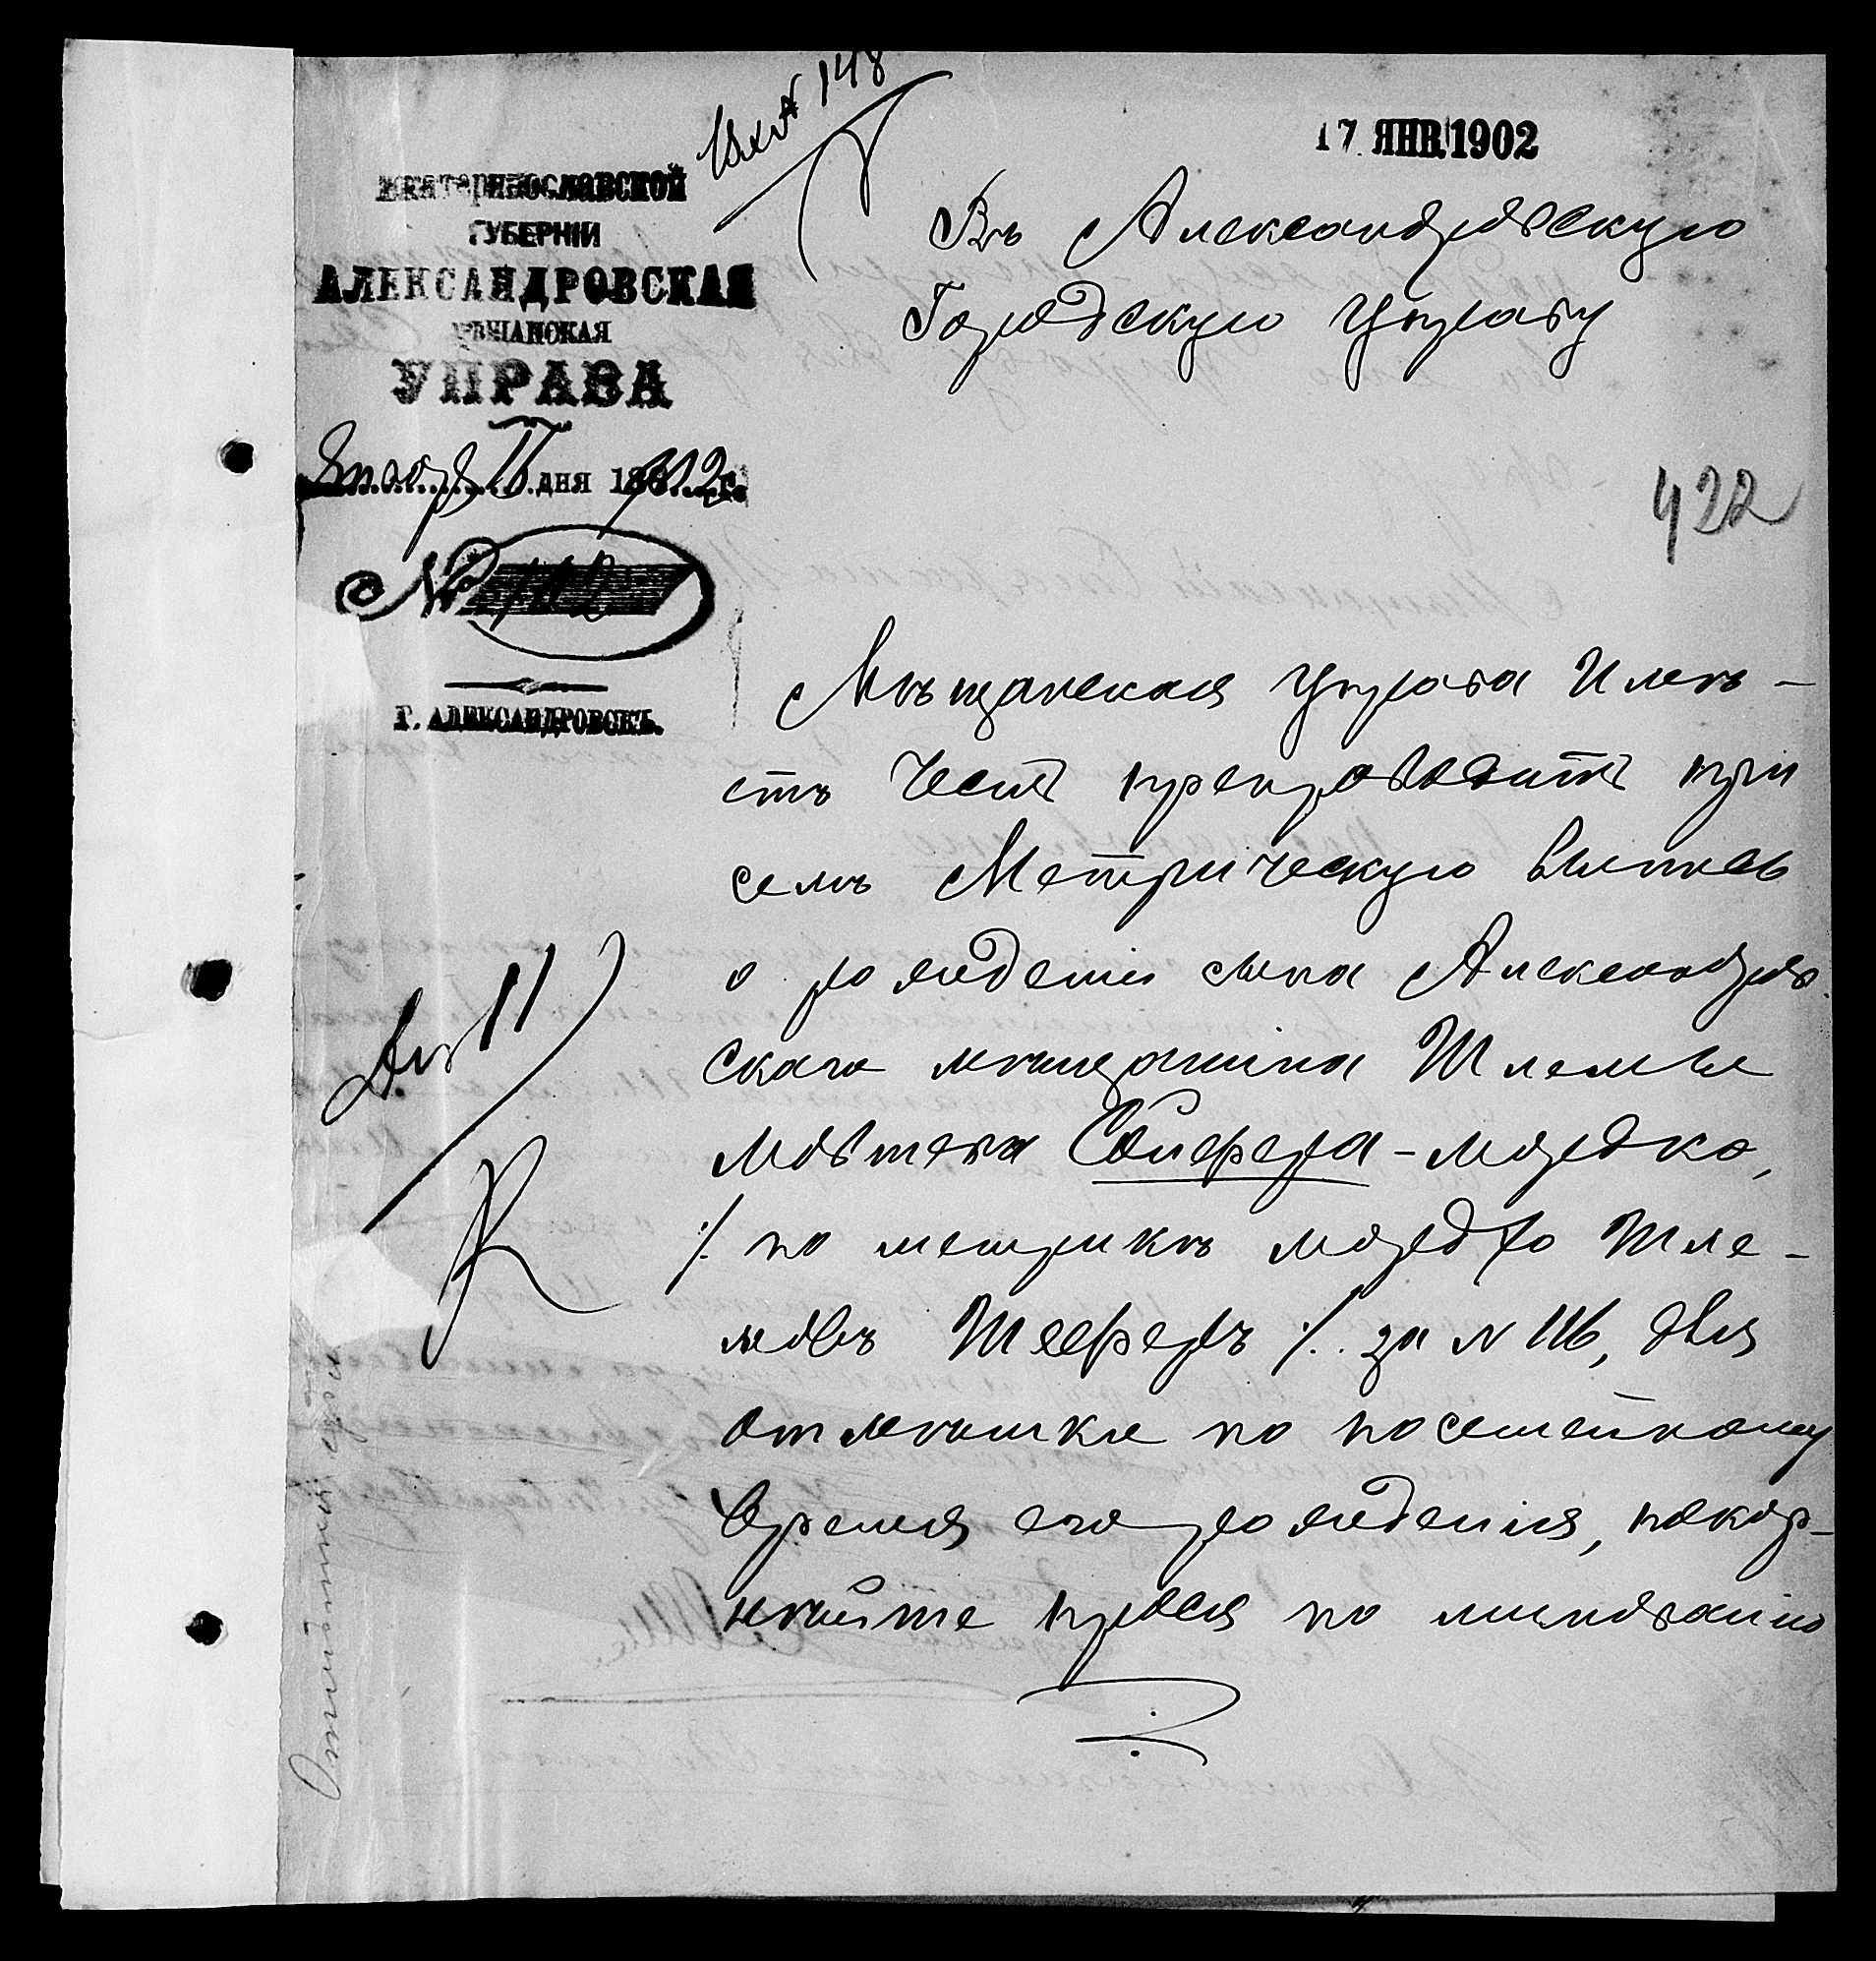 Вх № 148
17 ЯНВ 1902
Екатеринославской
ГУБЕРНІИ
АЛЕКСАНДРОВСКАЯ
МѢЩАНСКАЯ
УПРАВА
Января дня 1902 г.
№
Г. АЛЕКСАНДРОВСКЪ.
Въ Александровскую
Городскую Управу
422
Мѣщанская Управа Имѣ-
етъ Честь препроводить при
семъ Метрическую выпись
о рожденіи сына Александров
скаго мѣщанина Шлемы
Мовшева Сойфера - Мордко,
/. по метрикѣ Мордхо Шле-
мовъ /. за № 116, для
отмѣтки по посемейному
время его рожденія, покор-
нѣйше прося по миновании